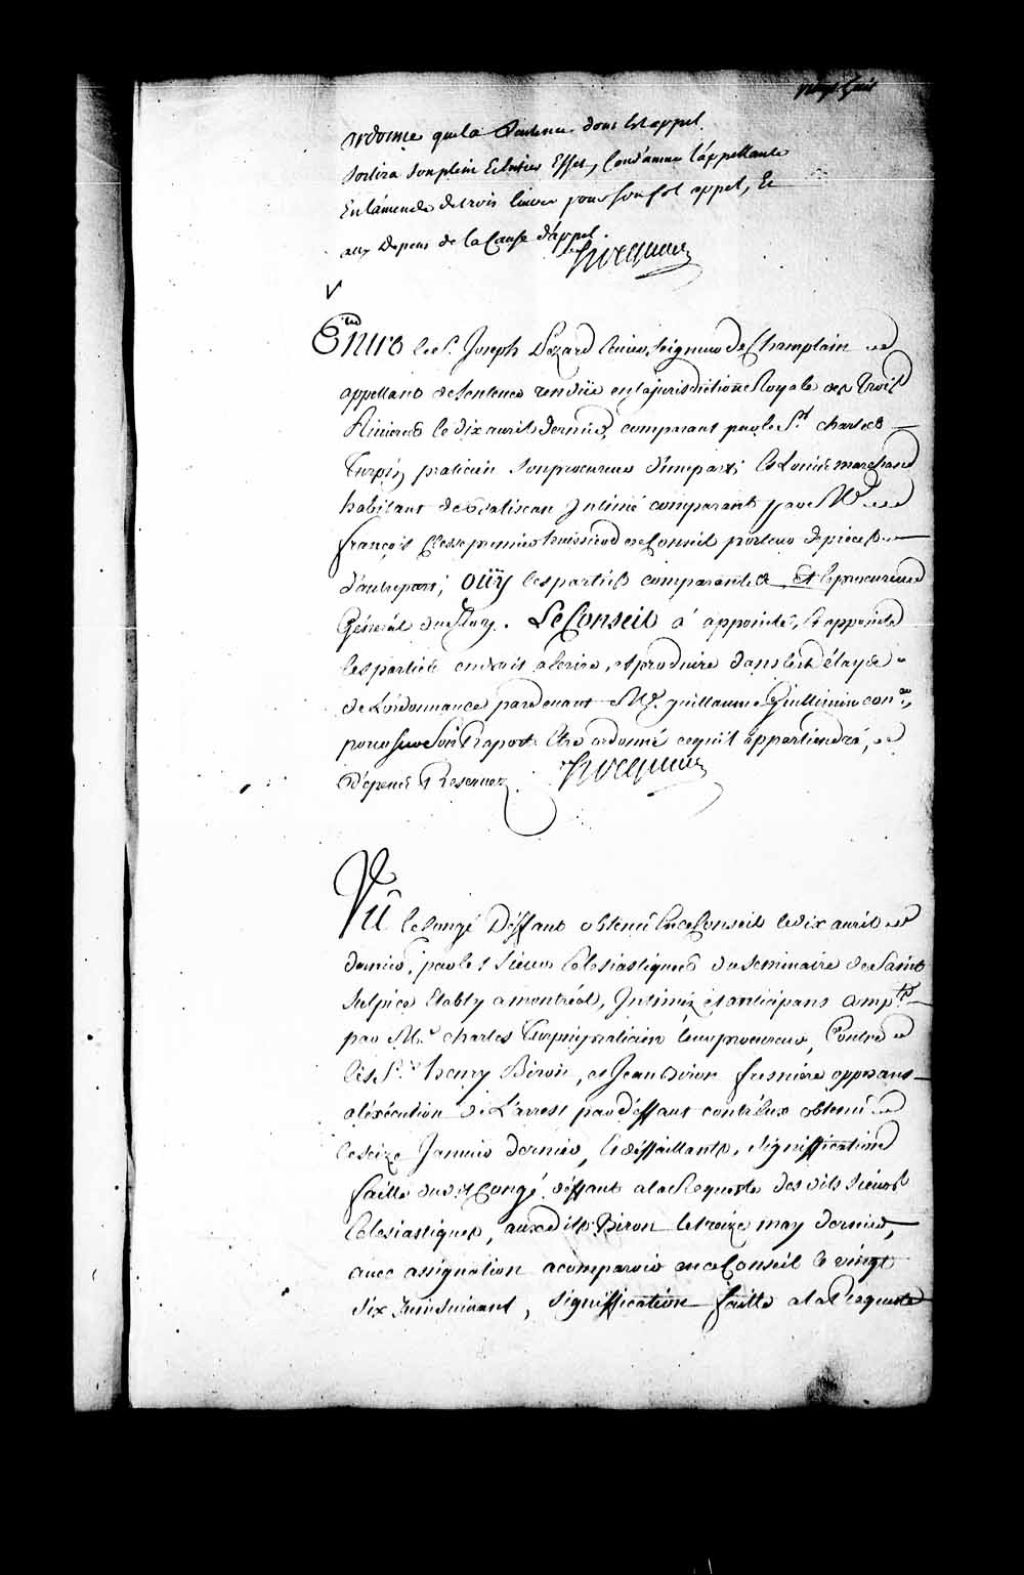 vingt huit
ordonne que la Sentence dont Est appel
Sortira Son plein Et Entier Effet, Condamne l'appellante
En l'amende de trois livres pour Son fol appel, Et
aux Depens de la Cause d'appel.
Hocquart
Entre le S.r Joseph Lezard Seigneur de Champlain
appellant de Sentence rendüe en la jurisdiction Royale des Trois
Rivieres le dix avril dernier, comparant par le S.r charles
Turpin praticien Son procureur d'une part; marchand
habitant de Batiscan Intimé comparant par M.e
françois Clesse premier huissier de ce Conseil porteur de pieces
d'autre part; Oüy les parties comparantes, Et le procureur
Général du Roy. Le Conseil à appointé, Et appointe
les parties en droit a Ecrire, et produire dans les delays de
de L'ordonnance pardevant M.e guillaume Guillimin con.er
pour Sur Son Raport Etre ordonné ce qu'il appartiendra,
Dépens Reservez.
Hocquart
Vû le Congé Déffaut obtenu En ce Conseil le dix avril
dernier, par les Sieurs Eclesiastiques du Seminaire de Saint
Sulpice Etably a montréal, Intimez et anticipans comp.ts
par M.e charles Turpin praticien leur procureur, Contre
les S.rs henry Biron, et Jean Biron fresniere opposans
a l'éxécution de L'arrest par déffaut contr'Eux obtenu
le Seize Janvier dernier, Et déffaillants, Signiffication
faitte dud.it Congé déffaut a la Requeste des dits Sieurs
Eclesiastiques, auxdits Biron le treize may dernier,
avec assignation a comparoir en ce Conseil le vingt
Six Juin Suivant, Signiffication faitte a la Requeste